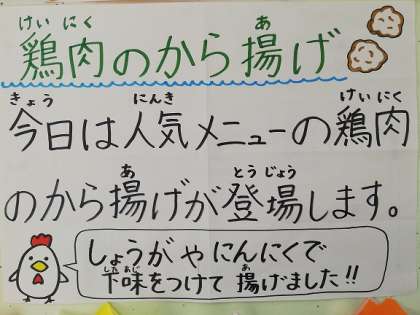 けいにく あ
鶏肉のから揚げ
きょう にんき けいにく
今日は人気メニューの鶏肉
あ とうじょう
のから揚げが登場します。
しょうがやにんにくで
したあじ あ
下味をつけて揚げました!!